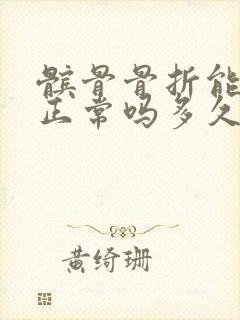 髌骨骨折能
正常吗多久
黄绮珊